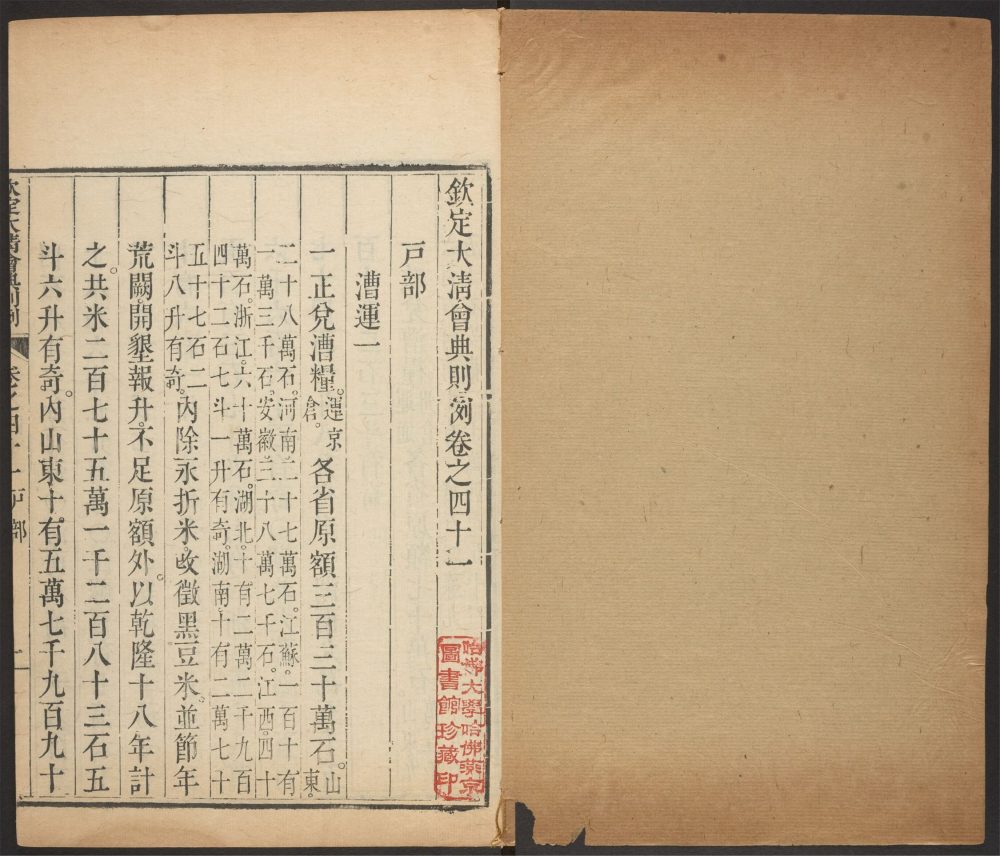 欽定大清會典則例卷之四十一
戶部
漕運一
一正兌漕糧。運京倉。各省原額三百三十萬石。山東。
二十八萬石。河南二十七萬石。江蘇一百十有
一萬三千石。安徽三十八萬七千石。江西四十
萬石。浙江六十萬石。湖北十有二萬二千九百
四十二石七斗一升有奇。湖南十有二萬七十
五十七石二
斗八升有奇。內除永折米。改徵黑豆米。並節年
荒闕開墾報升。不足原額外。以乾隆十八年計
之。共米二百七十五萬一千二百八十三石五
斗六升有奇。內山東十有五萬七千九百九十
欽定大清會典則例 卷之四十一 戶部 一
哈佛大學哈佛燕京
圖書館珍藏印